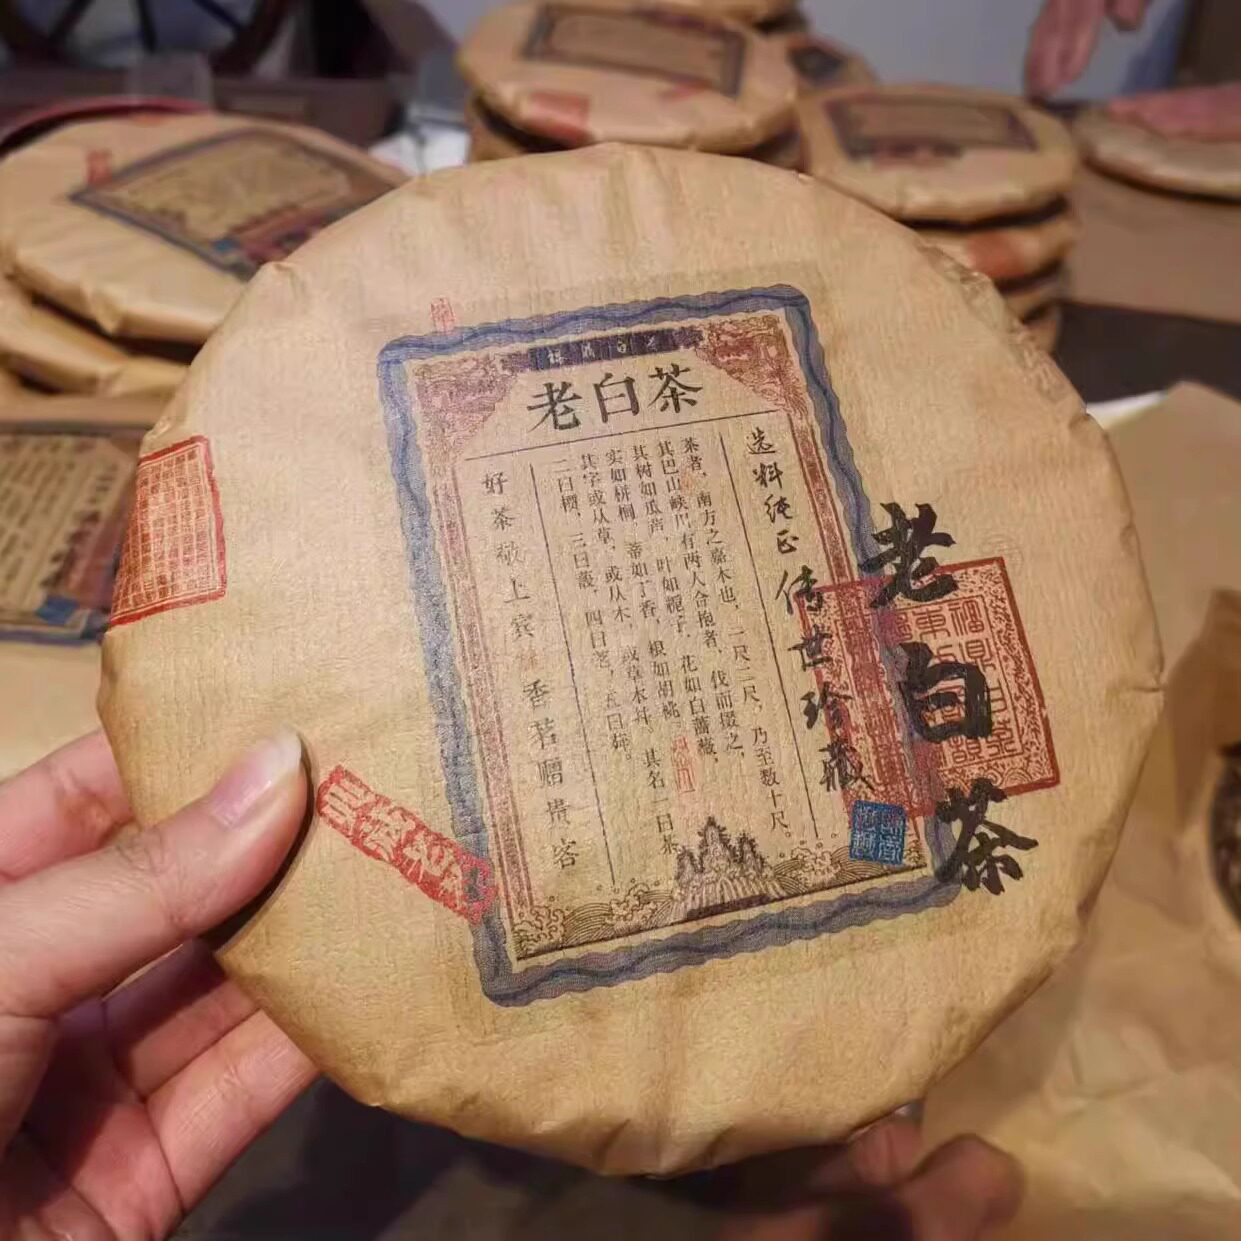 老白茶
选料纯正 传世珍藏
茶者，南方之嘉木也，一尺二尺，乃至数十尺。
其巴山峡川有两人合抱者，伐而掇之，
其树如瓜芦，叶如栀子，花如白蔷薇，
实如栟榈，蒂如丁香，根如胡桃。其名一曰茶
其字或从草，或从木，或草木并。
二曰槚，三曰蔎，四曰茗，五曰荈。
好茶敬上宾 香茗赠贵客
老白茶